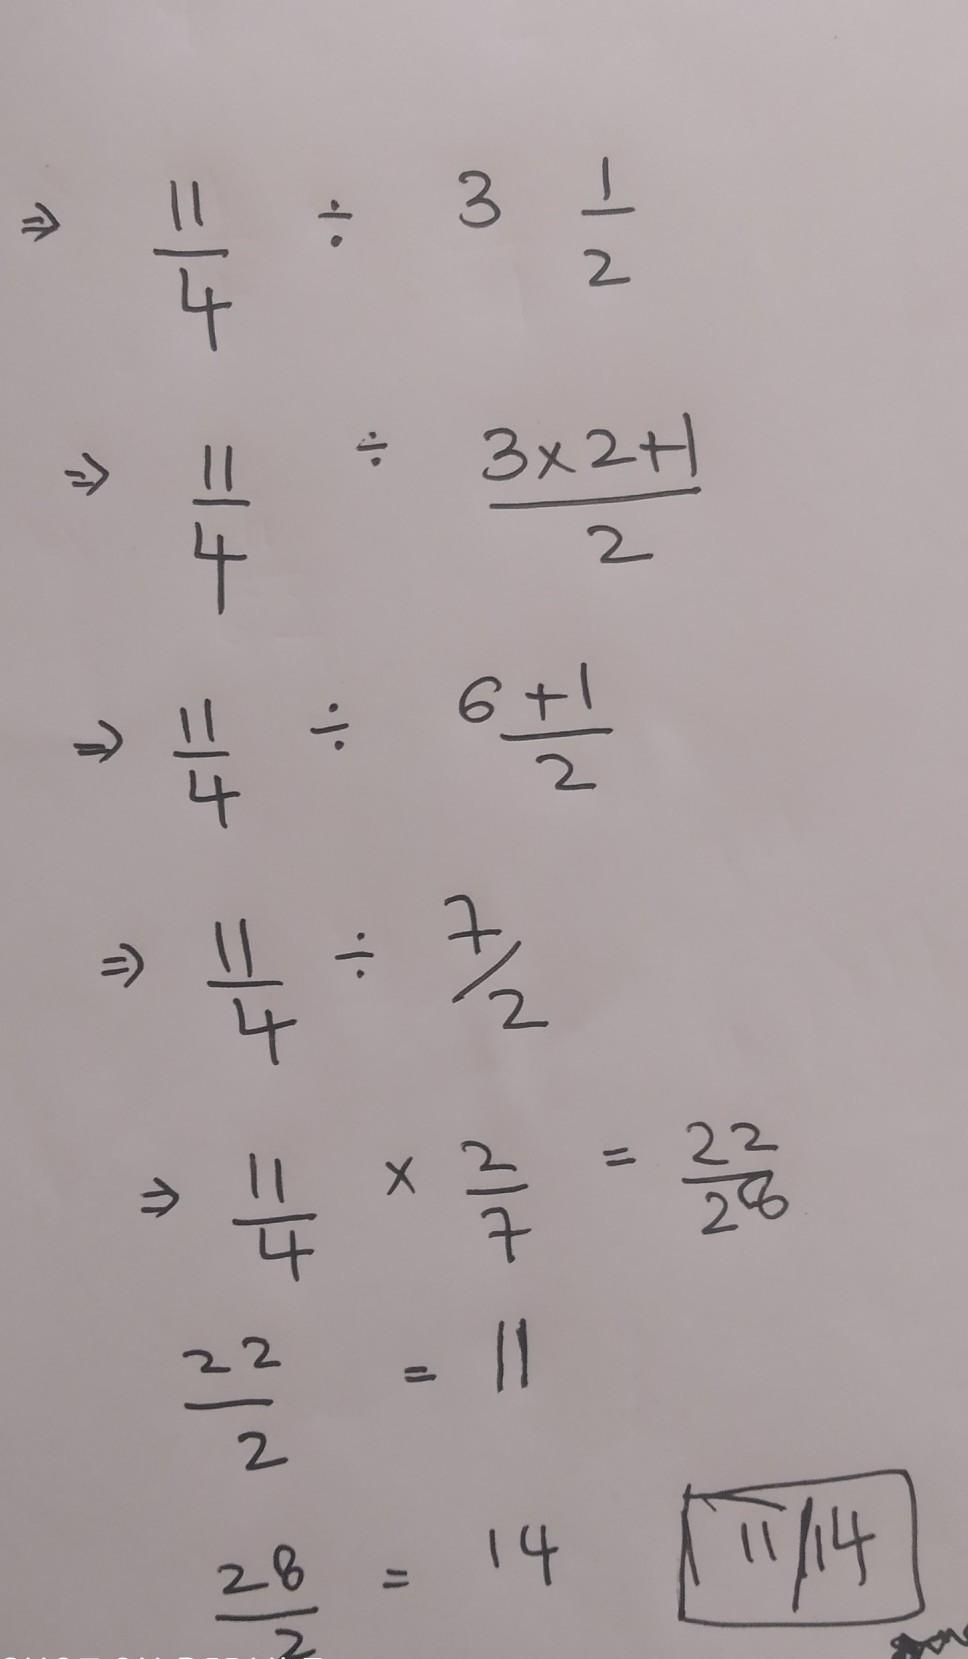 ⇒ 11/4 ÷ 3 1/2
⇒ 11/4 ÷ 3×2+1/2
⇒ 11/4 ÷ 6+1/2
⇒ 11/4 ÷ 7/2
⇒ 11/4 × 2/7 = 22/28
22/2 = 11
28/2 = 14 11/14